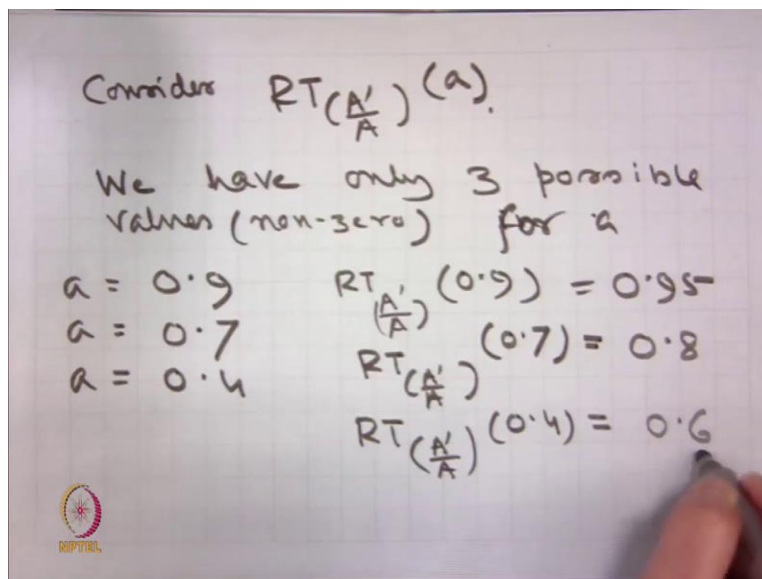 Consider RT(A'/A) (a).
We have only 3 possible
values (non-zero) for a
a = 0.9 RT(A'/A) (0.9) = 0.95
a = 0.7 RT(A'/A) (0.7) = 0.8
a = 0.4 RT(A'/A) (0.4) = 0.6
NPTEL